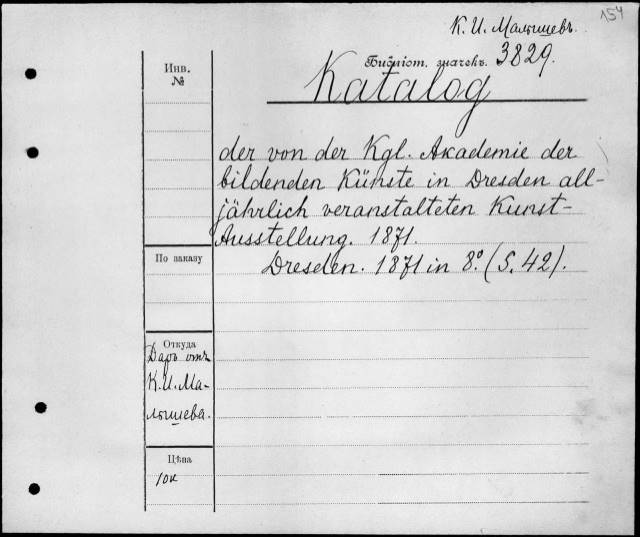 154
К. И. Малышевъ.
Библіот. значекъ. 3829.
Инв.
№
Katalog
der von der Kgl. Akademie der
bildenden Künste in Dresden all-
jährlich veranstalteten Kunst-
Ausstellung. 1871.
По заказу
Dresden. 1871 in 8.° (S. 42).
Откуда
Даръ отъ
К. И. Ма-
лышева.
Цѣна
10к